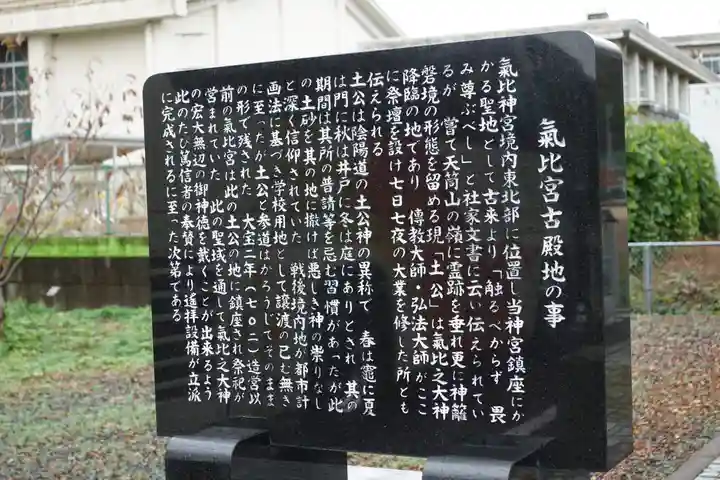 氣比宮古殿地の事
氣比神宮境内東北部に位置し当神宮鎮座にか
かる聖地として古来より「触るべからず 畏
み尊ぶべし」と社家文書に云い伝えられてい
るが 嘗て天筒山の嶺に霊跡を垂れ更に神籬
磐境の形態を留める現「土公」は氣比之大神
降臨の地であり 傳教大師・弘法大師がここ
に祭壇を設け七日七夜の大業を修した所とも
伝えられる
土公は陰陽道の土公神の異称で 春は竈に夏
は門に秋は井戸に冬は庭にありとされ 其の
期間は其所の普請等を忌む習慣があったが此
の土砂を其の地に撒けば悪しき神の祟りなし
と深く信仰されていた 戦後境内地が都市計
画法に基づき学校用地として譲渡の已む無き
に至ったが土公と参道はかろうじてそのまま
の形で残された 大宝二年(七〇二)造営以
前の氣比宮は此の土公の地に鎮座され祭祀が
営まれていた 此の聖域を通して氣比之大神
の宏大無辺の御神徳を戴くことが出来るよう
此のたび篤信者の奉賛により遥拝設備が立派
に完成されるに至った次第である